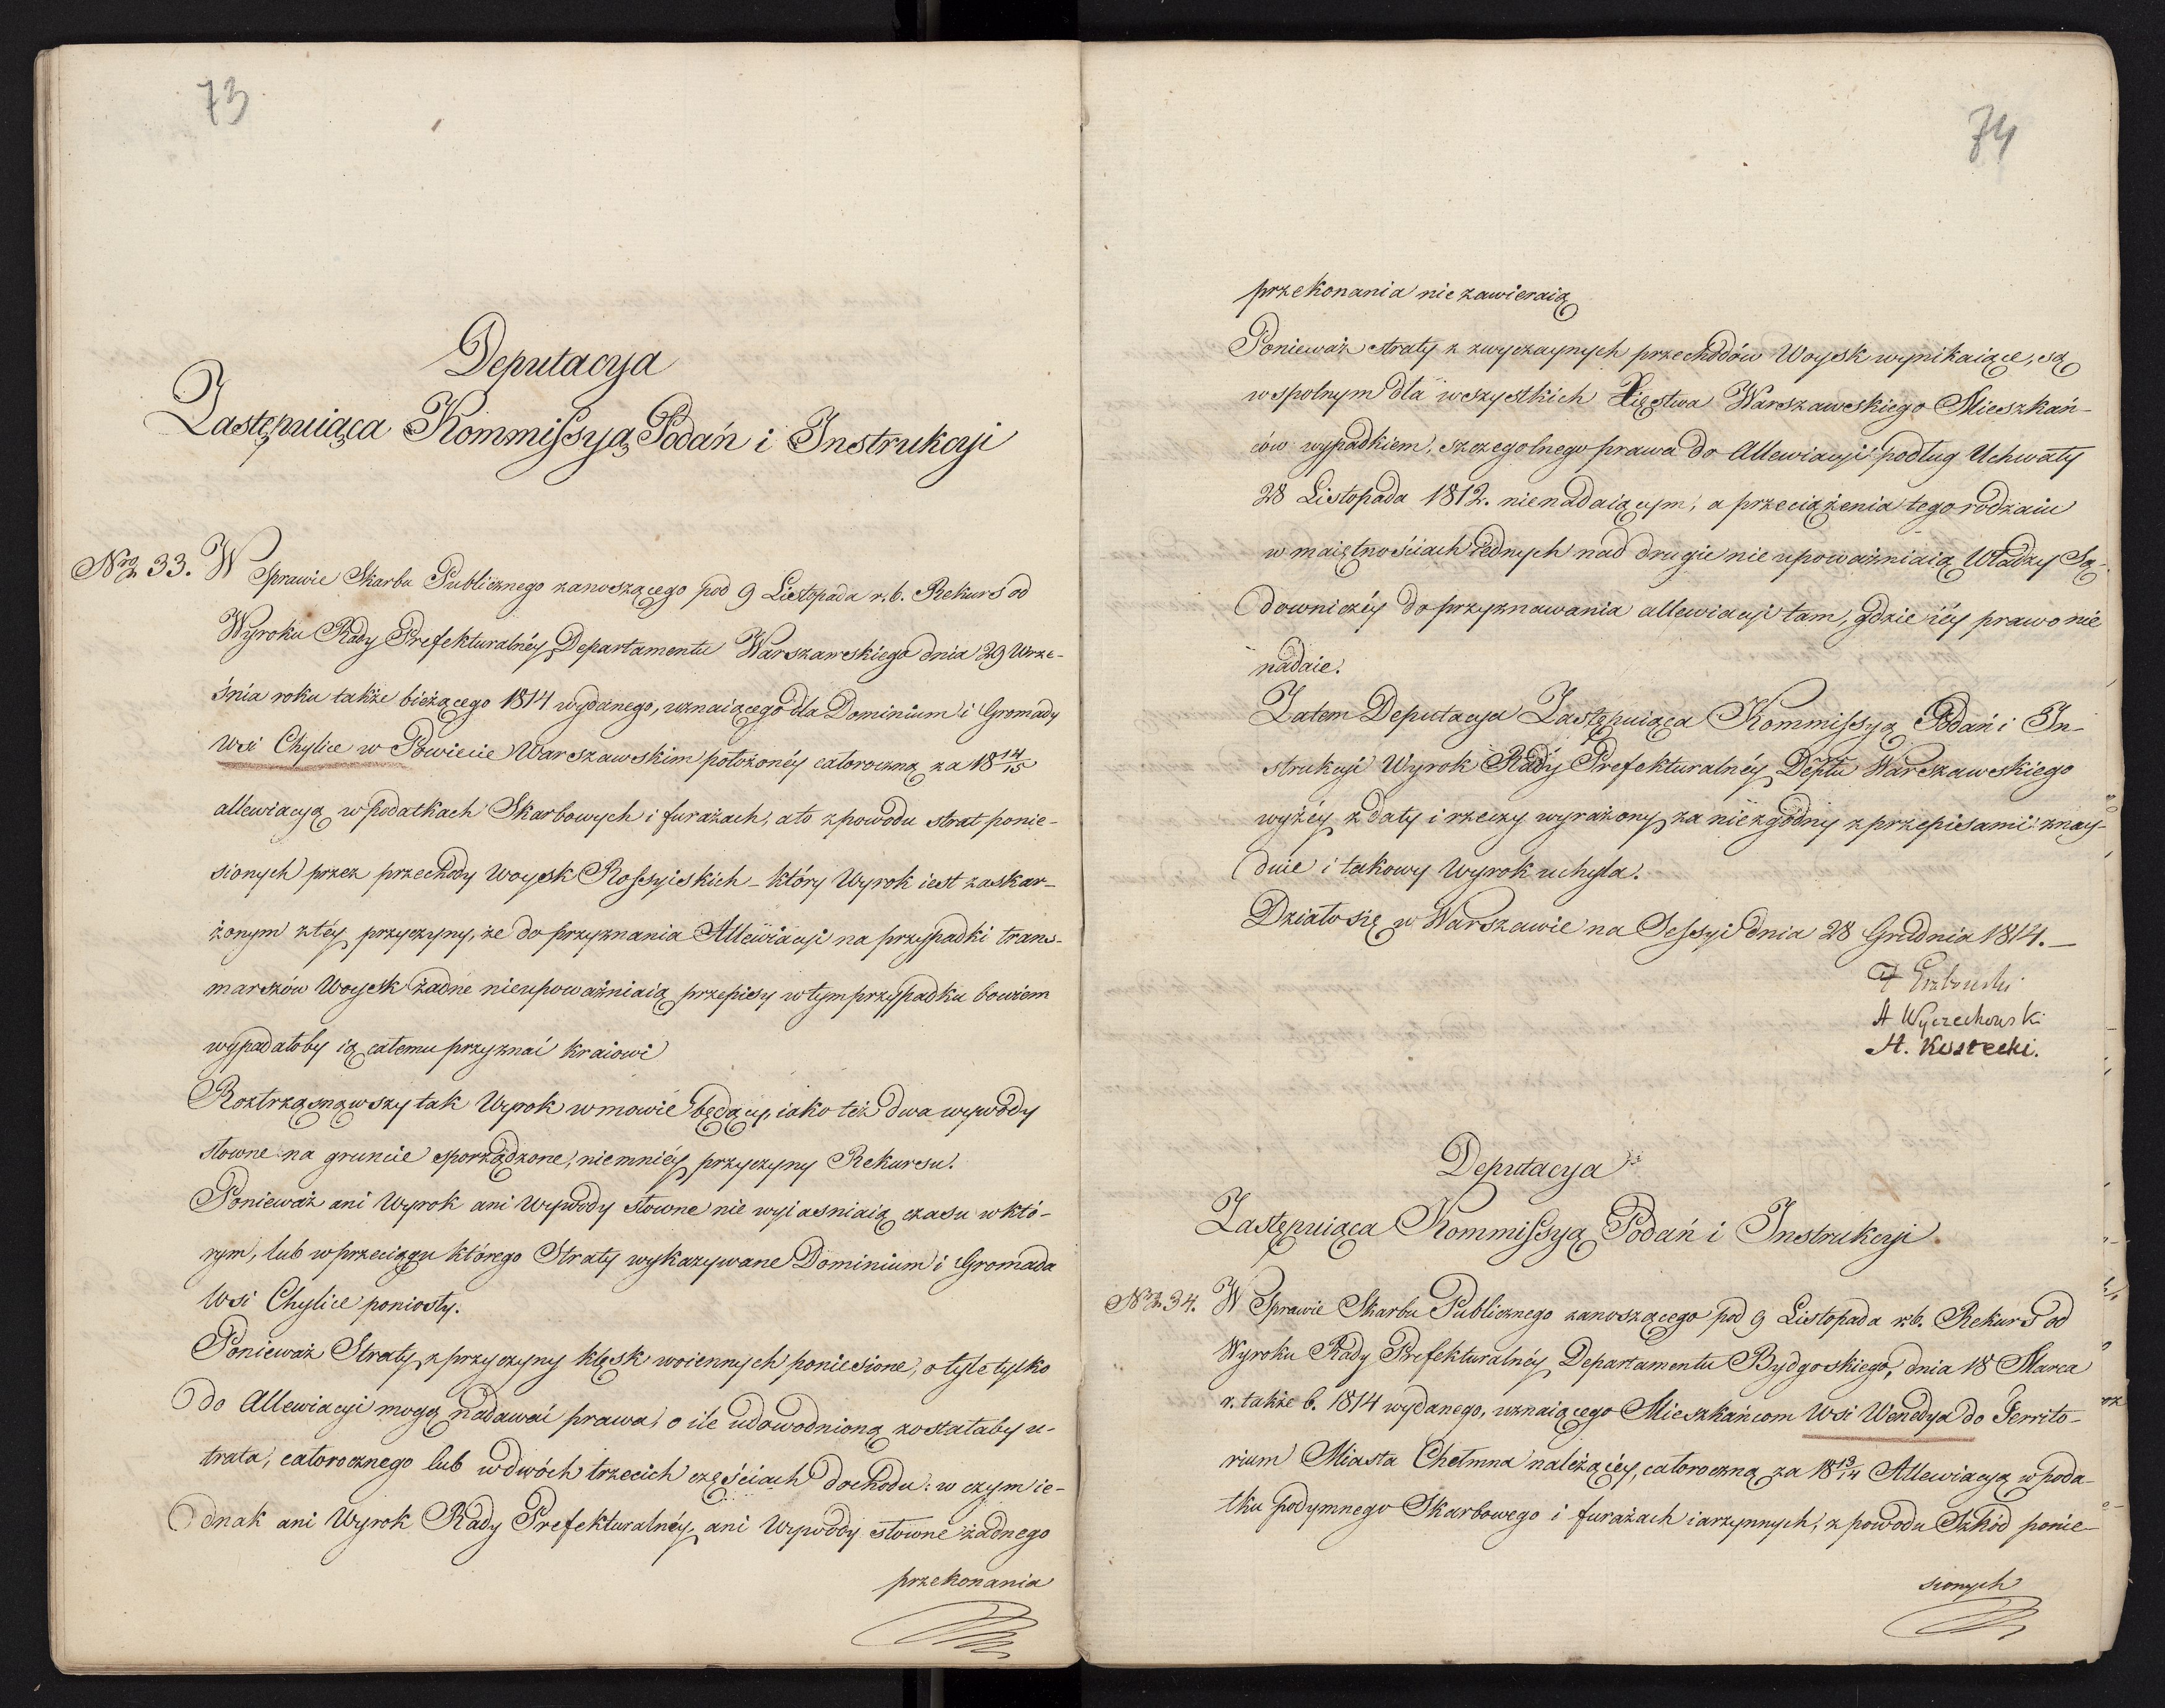 73
Deputacya
Zastępuiąca Kommissyą Podań i Instrukcyi
Nro 33. W Sprawie Skarbu Publicznego zanoszącego pod 9 Listopada r. b. Rekurs od
Wyroku Rady Prefekturalnéy Departamentu Warszawskiego dnia 29 Wrze-
śnia roku także bieżącego 1814 wydanego, uznaiącego dla Dominium i Gromady
Wsi Chylice w Powiecie Warszawskim położonéy całoroczną za 18 14/15
allewiacyą w podatkach Skarbowych i furażach, a to z powodu strat ponie-
sionych przez przechody Woysk Rossyiskich – który Wyrok iest zaskar-
żonym z téy przyczyny, że do przyznania Allewiacyi na przypadki trans-
marszów Woysk żadne nieupoważniaią przepisy w tym przypadku bowiem
wypadałoby ią całemu przyznać kraiowi
Roztrząsnąwszy tak Wyrok w mowie będący, iako też dwa wywody
słowne na gruncie sporządzone, niemniéy przyczyny Rekursu.
Ponieważ ani Wyrok ani Wywody słowne nie wyiaśniaią czasu w któ-
rym, lub w przeciągu którego Straty wykazywane Dominium i Gromada
Wsi Chylice poniosły.
Ponieważ Straty z przyczyny klęsk woiennych poniesione, o tyle tylko
do Allewiacyi mogą nadawać prawa, o ile udowodnioną zostałaby u-
trata, całorocznego lub w dwóch trzecich częściach dochodu: w czym ie-
dnak ani Wyrok Rady Prefekturalnéy, ani Wywody słowne żadnego
przekonania
74
przekonania nie zawieraią
Ponieważ straty z zwyczaynych przechodów Woysk wynikaiące, są
wspolnym dla wszystkich Xięstwa Warszawskiego Mieszkań-
ców wypadkiem, szczegolnego prawa do Allewiacyi podług Uchwały
28 Listopada 1812. nienadaiącym, a przeciążenia tego rodzaiu
w maiętnościach iednych nad drugie nie upoważniaią Władzy Są-
downiczéy do przyznawania allewiacyi tam, gdzie iéy prawo nie
nadaie.
Zatem Deputacya Zastępuiąca Kommissyą Podań i In-
strukcyi Wyrok Rady Prefekturalnéy Deptu Warszawskiego
wyżéy z daty i rzeczy wyrażony za niezgodny z przepisami znay-
duie i takowy Wyrok uchyla.
Działo się w Warszawie na Sessyi dnia 28 Grudnia 1814. –
A Wyczechowski
A. Kostecki.
Deputacya
Zastępuiąca Kommissyą Podań i Instrukcyi
Nro 34. W Sprawie Skarbu Publicznego zanoszącego pod 9 Listopada r. b. Rekurs od
Wyroku Rady Prefekturalnéy Departamentu Bydgoskiego, dnia 18 Marca
r. także b. 1814 wydanego, uznaiącego Mieszkańcom Wsi Wenedya do Territo-
rium Miasta Chełmna należącéy, całoroczną za 18 13/14 Allewiacyą w poda-
tku podymnego Skarbowego i furażach iarzynnych, z powodu Szkód ponie-
sionych